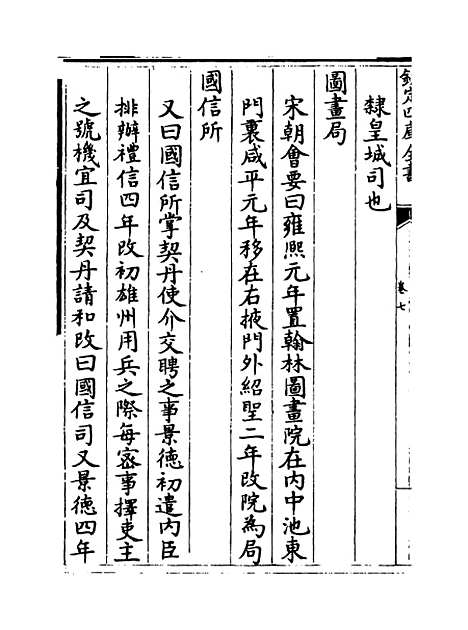 欽定四庫全書
卷七
隸皇城司也
圖畫局
宋朝會要曰雍熙元年置翰林圖畫院在内中池東
門裏咸平元年移在右掖門外紹聖二年改院為局
國信所
又曰國信所掌契丹使介交聘之事景徳初遣内臣
排辦禮信四年改初雄州用兵之際每宻事擇吏主
之號機宜司及契丹請和改曰國信司又景徳四年